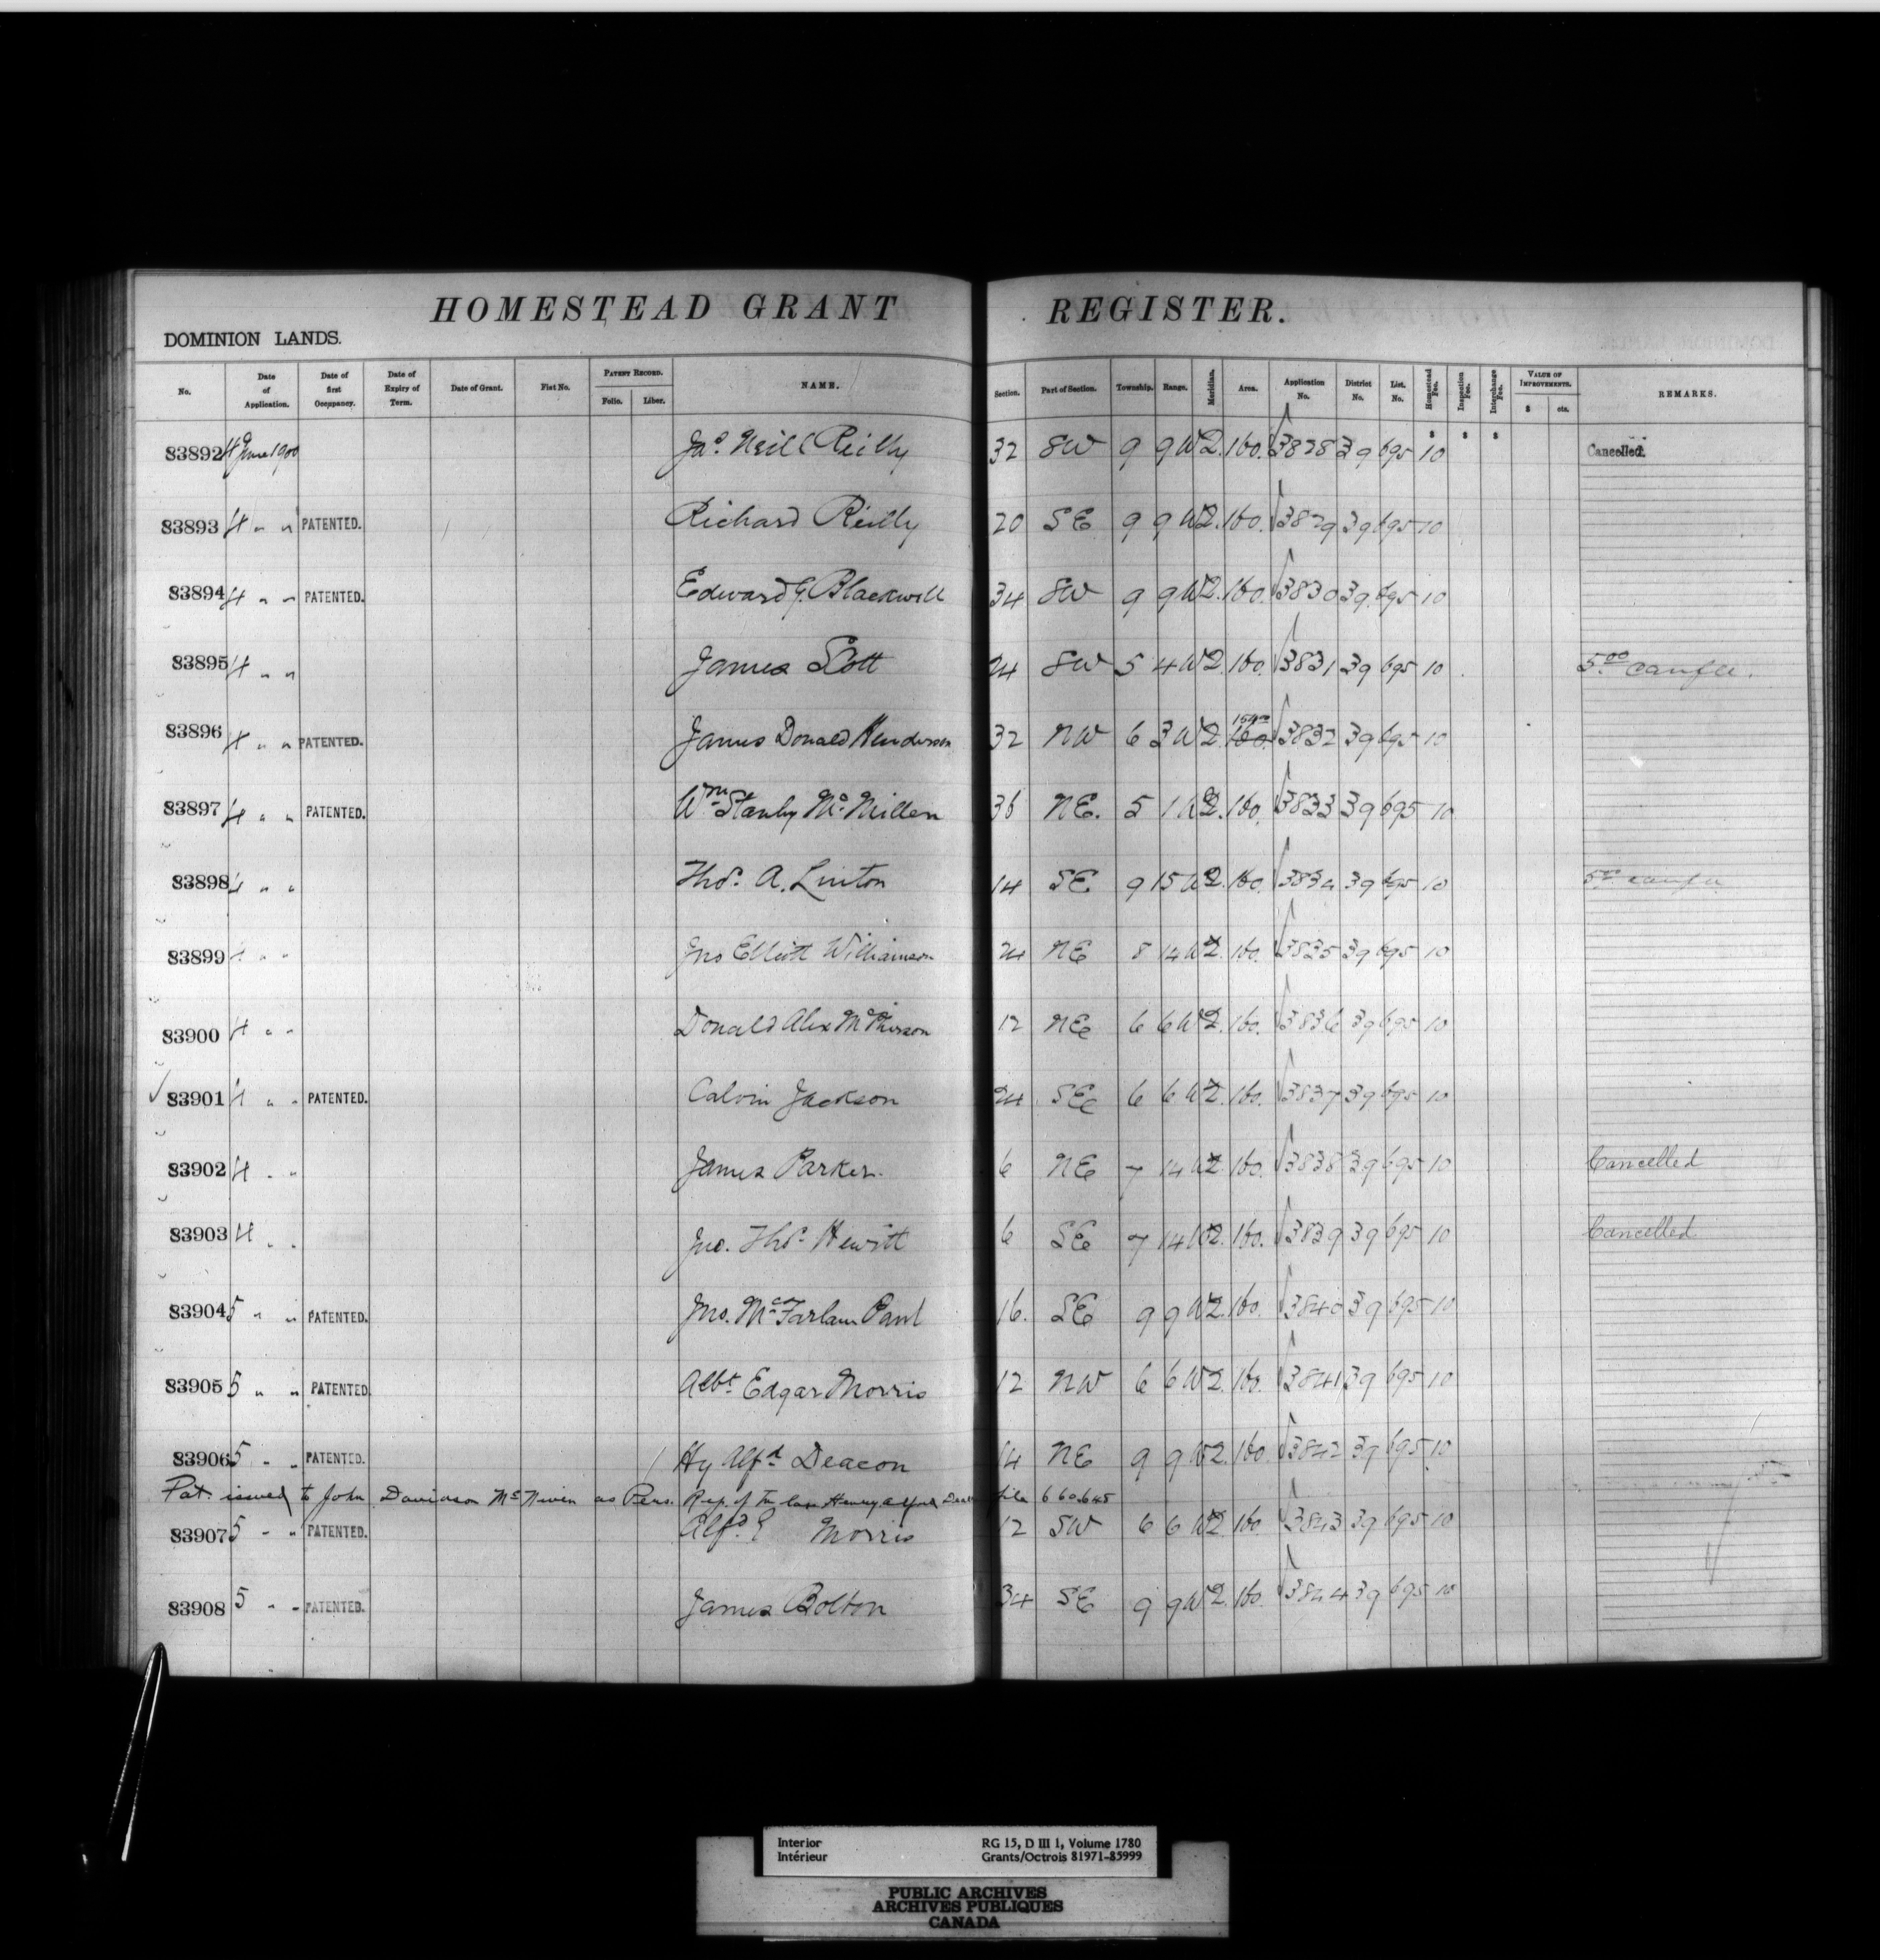 HOMESTEAD GRANT REGISTER.
DOMINION LANDS.
No. Date of Application. Date of first Occupancy. Date of Expiry of Term. Date of Grant. Fiat No. PATENT RECORD. Folio. Liber. NAME. Section. Part of Section. Township. Range. Meridian. Area. Application No. District No. List. No. Homestead Fee. Inspection Fee. Interchange Fee. VALUE OF IMPROVEMENTS. $ cts. REMARKS.
83892 4 June 1900 Jas. Neill Reilly 32 SW 9 9 W2. 160. 3828 39 695 10 Cancelled.
83893 4 " " PATENTED. Richard Reilly 20 SE 9 9 W2. 160. 3829 39 695 10
83894 4 " " PATENTED. Edward G. Blackwell 34 SW 9 9 W2. 160. 3830 39 695 10
83895 4 " " James Scott 24 SW 5 4 W2. 160. 3831 39 695 10 5.00 canfee.
83896 4 " " PATENTED. James Donald Henderson 32 NW 6 3 W2. 160. 3832 39 695 10
83897 4 " " PATENTED. Wm. Stanley Mc. Millen 36 NE. 5 1 W2. 160. 3833 39 695 10
83898 4 " " Thos. A. Linton 14 SE 9 15 W2. 160. 3834 39 695 10 5.00 canfee
83899 4 " " Jno Elliott Williamson 24 NE 8 14 W2. 160. 3835 39 695 10
83900 4 " " Donald Alex McPherson 12 NE 6 6 W2. 160. 3836 39 695 10
83901 4 " " PATENTED. Calvin Jackson 24 SE 6 6 W2. 160. 3837 39 695 10
83902 4 " " James Parker. 6 NE 7 14 W2. 160. 3838 39 695 10 Cancelled
83903 4 " " Jno. Thos. Hewitt 6 SE 7 14 W2. 160. 3839 39 695 10 Cancelled
83904 5 " " PATENTED. Jno. McFarlane Paul 16. SE 9 9 W2. 160. 3840 39 695 10
83905 5 " " PATENTED Albt. Edgar Morris 12 NW 6 6 W2. 160. 3841 39 695 10
83906 5 " " PATENTED. Hy Alfd. Deacon 14 NE 9 9 W2. 160. 3842 39 695 10
Pat. issued to John Davidson McNiven as Pers. Rep. of the late Henry Alfred Deacon file 660645
83907 5 " " PATENTED. Alfd. E Morris 12 SW 6 6 W2. 160 3843 39 695 10
83908 5 " " PATENTED. James Bolton 34 SE 9 9 W2. 160. 3844 39 695 10
Interior RG 15, D III 1, Volume 1780
Intérieur Grants/Octrois 81971-85999
PUBLIC ARCHIVES
ARCHIVES PUBLIQUES
CANADA